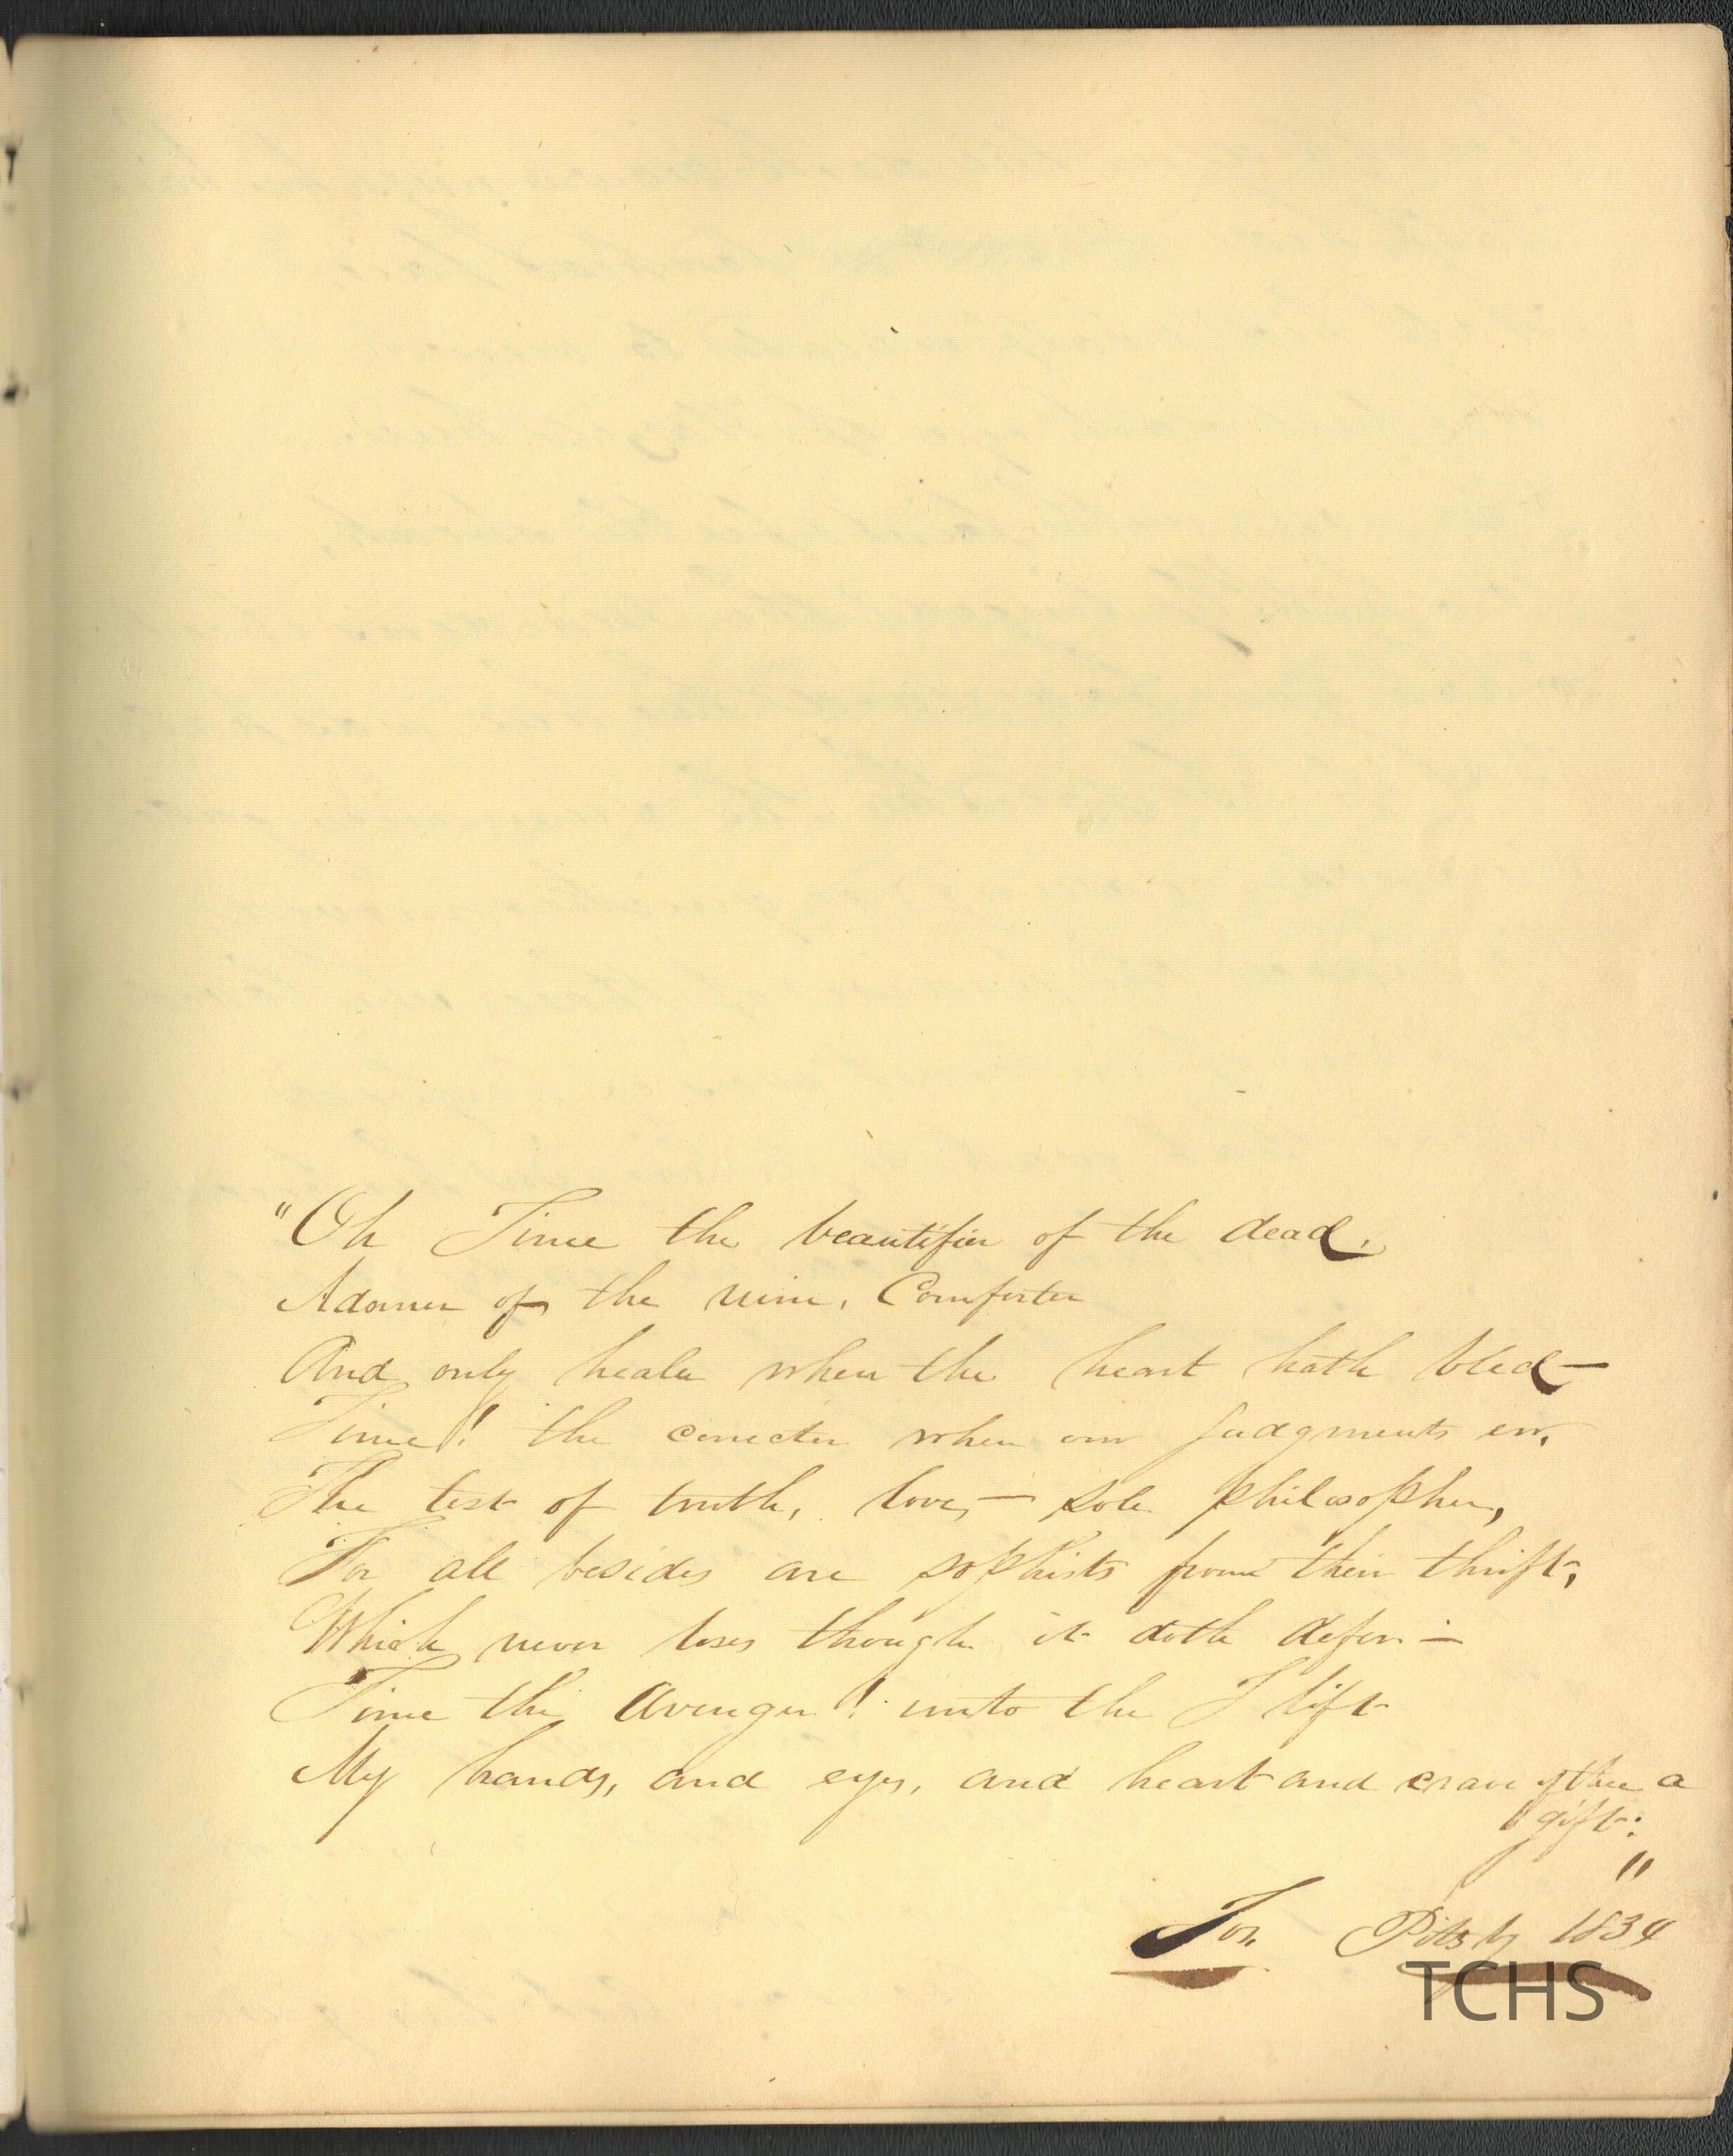 "Oh Time the beautifier of the dead,
Adorner of the ruin, Comforter
And only healer when the heart hath bled —
Time! the correcter when our Judgments err,
The test of truth, love, — sole philosopher,
For all besides are sophists from their thrift,
Which never loses though it doth defer —
Time the Avenger! unto the I lift
My hands, and eyes, and heart and crave of thee a
gift:
"
Jos. Pitsby 1834
TCHS